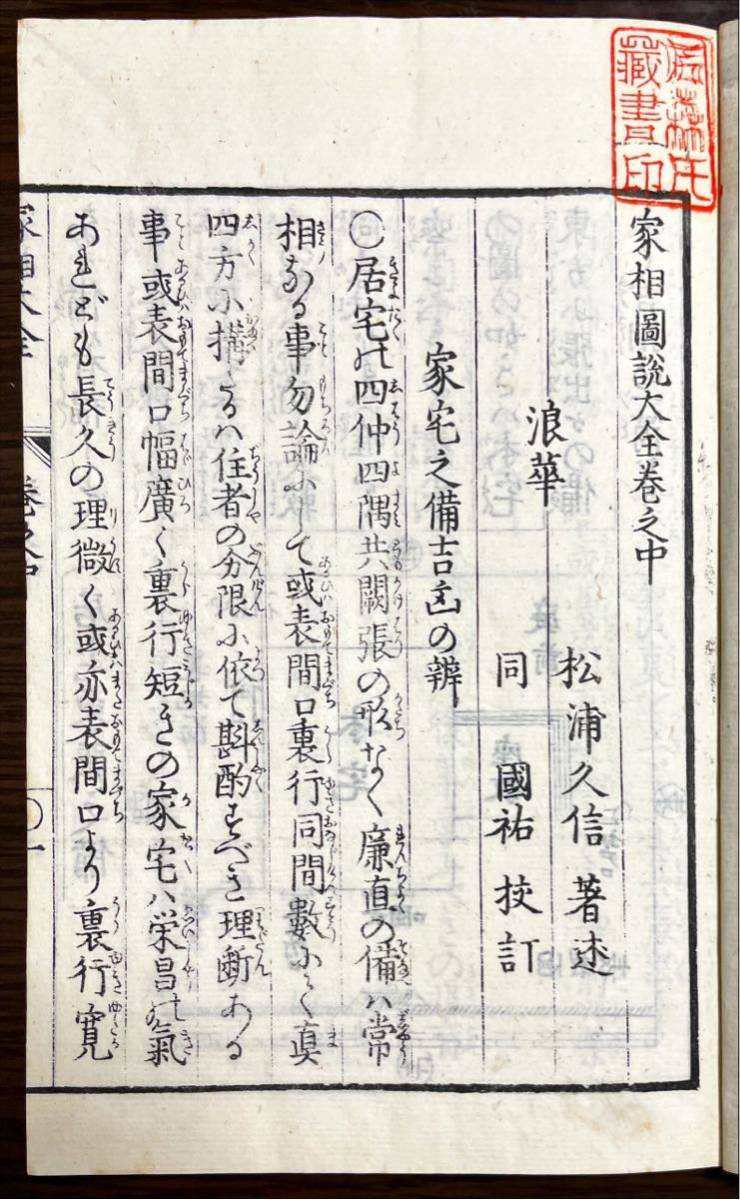 家相圖説大全卷之中
浪華
松浦久信著述
同國祐挍訂
家宅之備吉凶の辨
○居宅の四仲四隅共闕張の形なく廉直の備ハ常
相なる事勿論にして或表間口裏行同間數にて真
四方に搆たるハ住者の分限に依て斟酌すべき理斷ある
事或表間口幅廣く裏行短きの家宅ハ栄昌の氣
あれども長久の理微く或亦表間口より裏行寛
家相大全
卷之中
〇一
氏
藏書印